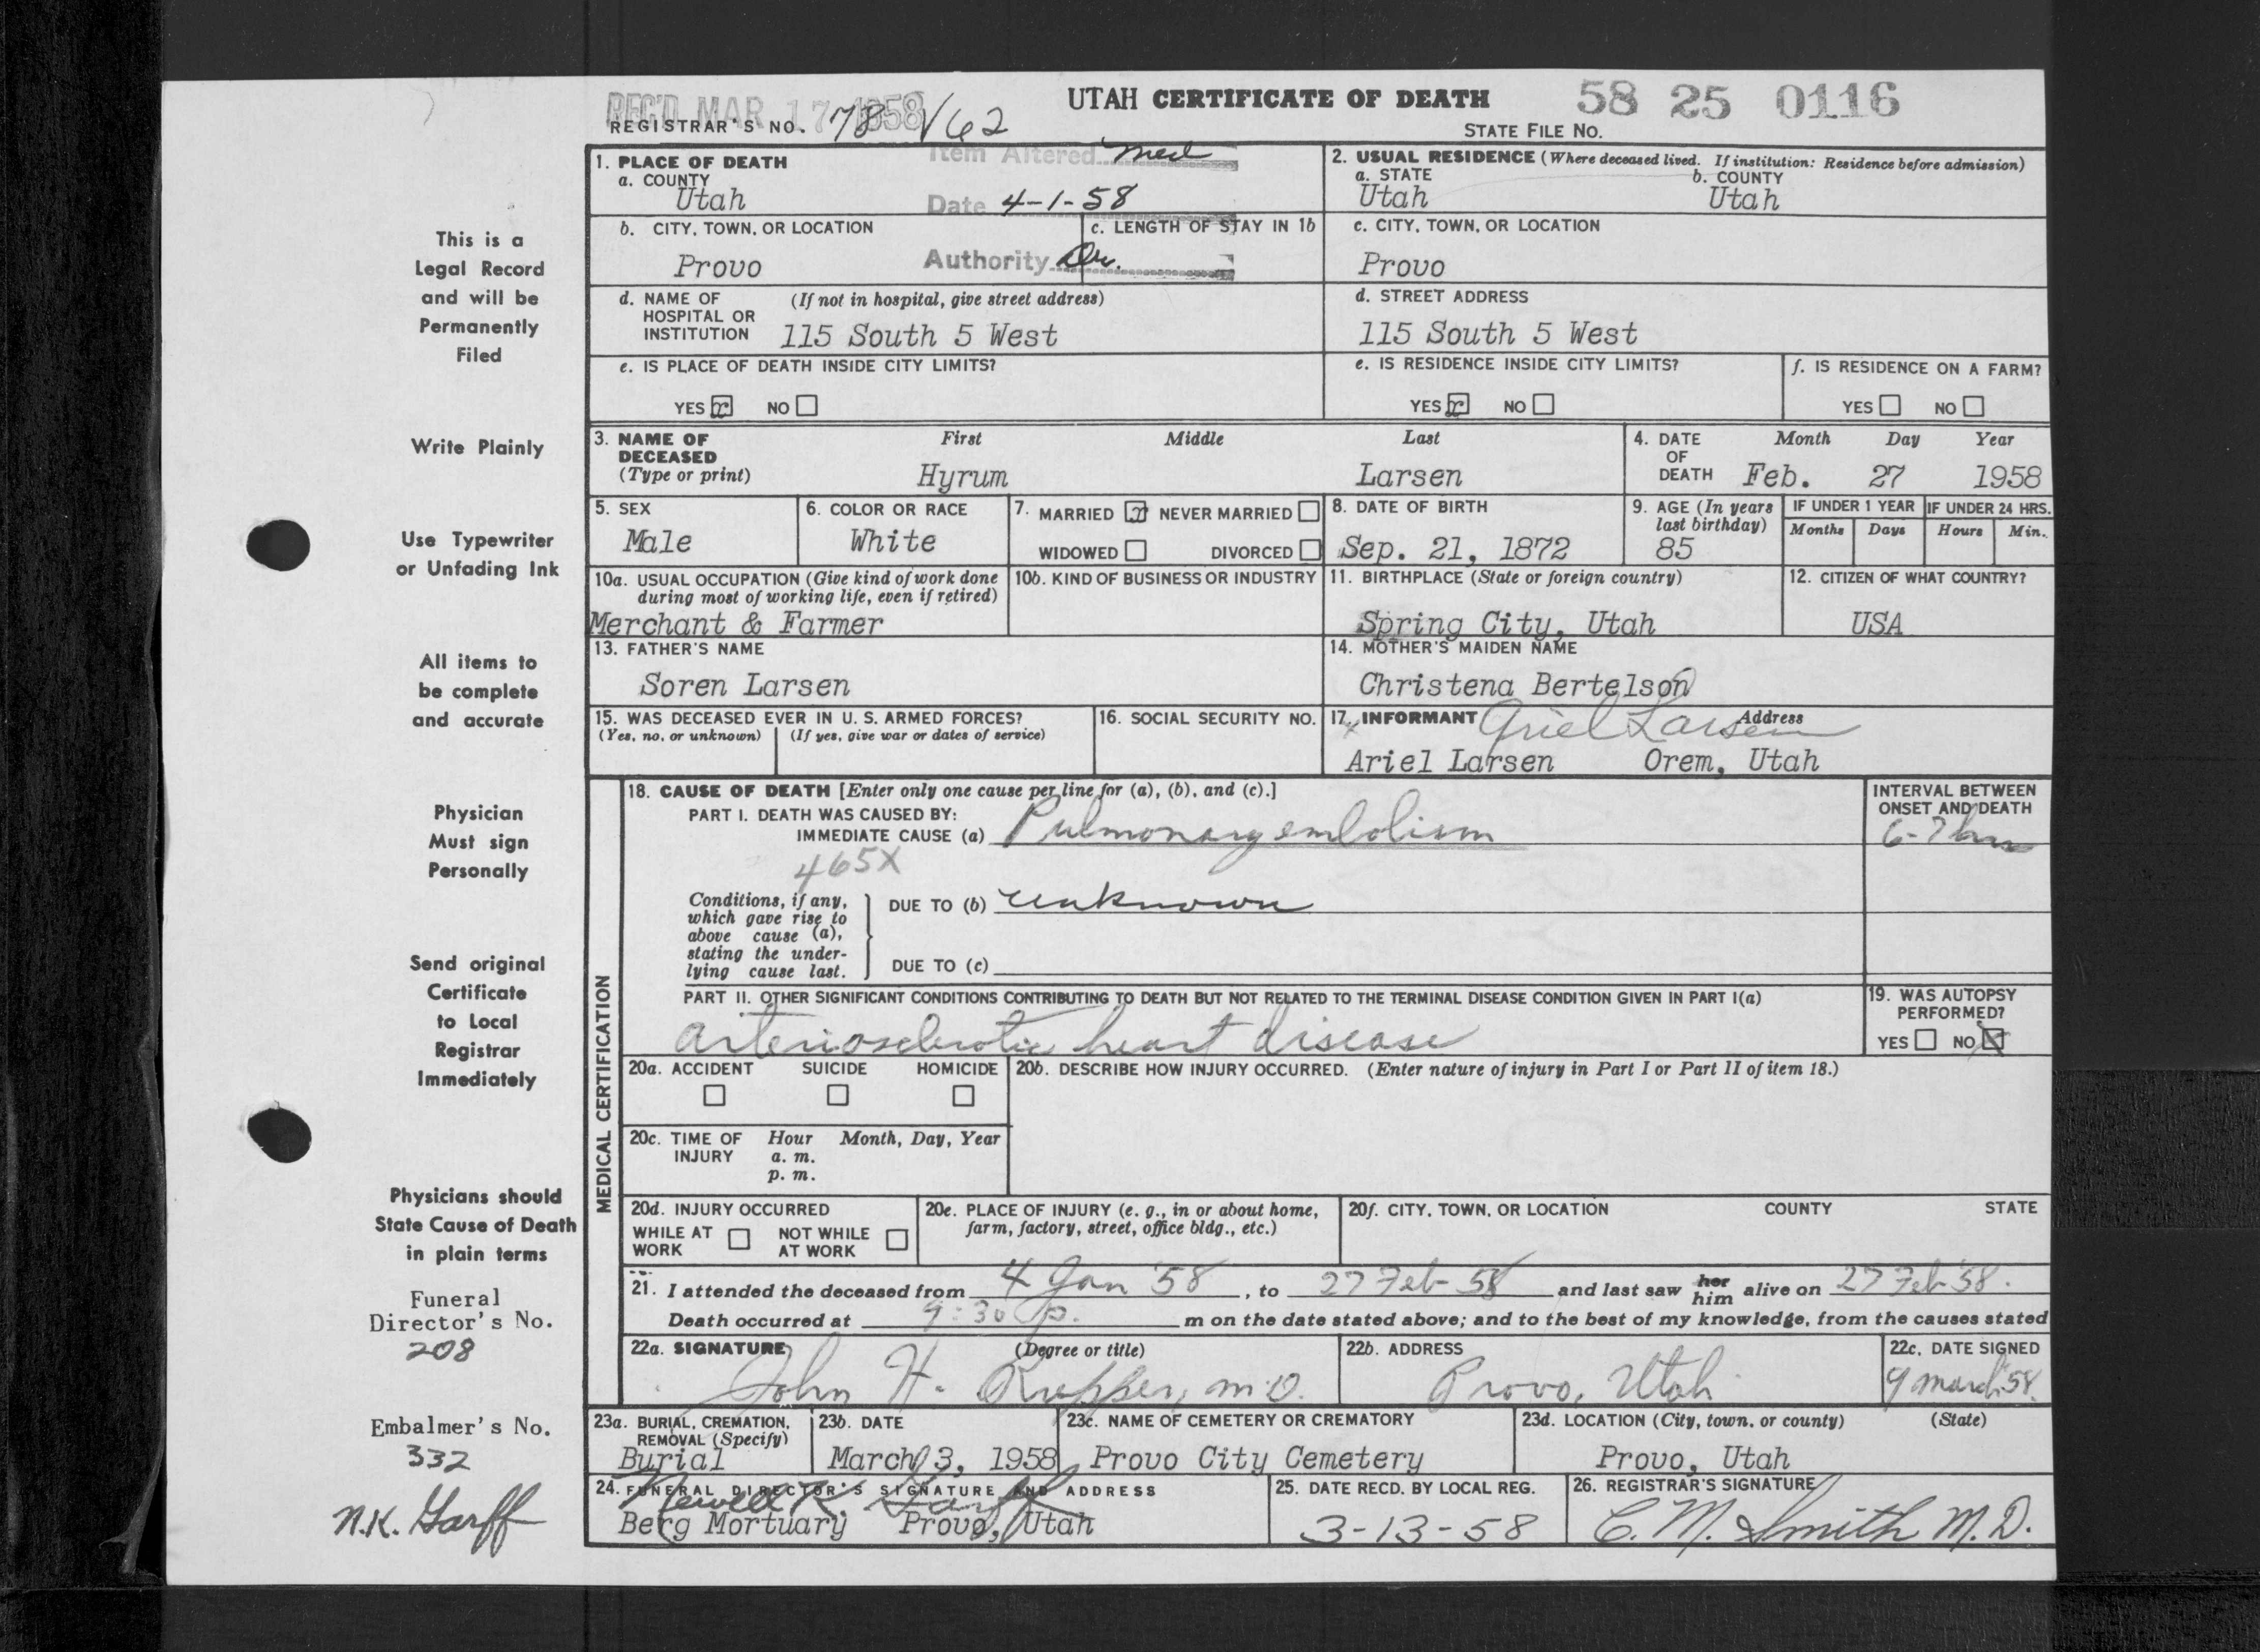 REC'D MAR 17 1958
UTAH CERTIFICATE OF DEATH
58 25 0116
REGISTRAR'S NO. 78 /62
STATE FILE NO.
Item Altered med
Date 4-1-58
Authority Dr.
1. PLACE OF DEATH
a. COUNTY
Utah
2. USUAL RESIDENCE (Where deceased lived. If institution: Residence before admission)
a. STATE
Utah
b. COUNTY
Utah
b. CITY, TOWN, OR LOCATION
Provo
c. LENGTH OF STAY IN 1b
c. CITY, TOWN, OR LOCATION
Provo
d. NAME OF HOSPITAL OR INSTITUTION
(If not in hospital, give street address)
115 South 5 West
d. STREET ADDRESS
115 South 5 West
e. IS PLACE OF DEATH INSIDE CITY LIMITS?
YES x NO
e. IS RESIDENCE INSIDE CITY LIMITS?
YES x NO
f. IS RESIDENCE ON A FARM?
YES NO
3. NAME OF DECEASED
(Type or print)
First Middle Last
Hyrum Larsen
4. DATE OF DEATH
Month Day Year
Feb. 27 1958
5. SEX
Male
6. COLOR OR RACE
White
7. MARRIED x NEVER MARRIED
WIDOWED DIVORCED
8. DATE OF BIRTH
Sep. 21, 1872
9. AGE (In years last birthday)
85
IF UNDER 1 YEAR
Months Days
IF UNDER 24 HRS.
Hours Min.
10a. USUAL OCCUPATION (Give kind of work done
during most of working life, even if retired)
Merchant & Farmer
10b. KIND OF BUSINESS OR INDUSTRY
11. BIRTHPLACE (State or foreign country)
Spring City, Utah
12. CITIZEN OF WHAT COUNTRY?
USA
13. FATHER'S NAME
Soren Larsen
14. MOTHER'S MAIDEN NAME
Christena Bertelson
15. WAS DECEASED EVER IN U. S. ARMED FORCES?
(Yes, no, or unknown) (If yes, give war or dates of service)
16. SOCIAL SECURITY NO.
17. INFORMANT Ariel Larsen Address
x
Ariel Larsen Orem, Utah
MEDICAL CERTIFICATION
18. CAUSE OF DEATH [Enter only one cause per line for (a), (b), and (c).]
PART I. DEATH WAS CAUSED BY:
IMMEDIATE CAUSE (a) Pulmonary embolism
465X
INTERVAL BETWEEN
ONSET AND DEATH
6-7 hrs
Conditions, if any,
which gave rise to
above cause (a),
stating the under-
lying cause last.
DUE TO (b) unknown
DUE TO (c)
PART II. OTHER SIGNIFICANT CONDITIONS CONTRIBUTING TO DEATH BUT NOT RELATED TO THE TERMINAL DISEASE CONDITION GIVEN IN PART I(a)
arteriosclerotic heart disease
19. WAS AUTOPSY
PERFORMED?
YES NO X
20a. ACCIDENT SUICIDE HOMICIDE
20b. DESCRIBE HOW INJURY OCCURRED. (Enter nature of injury in Part I or Part II of item 18.)
20c. TIME OF INJURY
Hour Month, Day, Year
a. m.
p. m.
20d. INJURY OCCURRED
WHILE AT WORK NOT WHILE AT WORK
20e. PLACE OF INJURY (e. g., in or about home,
farm, factory, street, office bldg., etc.)
20f. CITY, TOWN, OR LOCATION COUNTY STATE
21. I attended the deceased from 4 Jan '58, to 27 Feb 58 and last saw her him alive on 27 Feb '58.
Death occurred at 9:30 p. m on the date stated above; and to the best of my knowledge, from the causes stated
22a. SIGNATURE (Degree or title)
John H. Rupper, M.D.
22b. ADDRESS
Provo, Utah
22c. DATE SIGNED
9 march '58
23a. BURIAL, CREMATION,
REMOVAL (Specify)
Burial
23b. DATE
March 3, 1958
23c. NAME OF CEMETERY OR CREMATORY
Provo City Cemetery
23d. LOCATION (City, town, or county) (State)
Provo, Utah
24. FUNERAL DIRECTOR'S SIGNATURE AND ADDRESS
Newell K. Garff
Berg Mortuary Provo, Utah
25. DATE RECD. BY LOCAL REG.
3-13-58
26. REGISTRAR'S SIGNATURE
C. M. Smith M.D.
This is a
Legal Record
and will be
Permanently
Filed
Write Plainly
Use Typewriter
or Unfading Ink
All items to
be complete
and accurate
Physician
Must sign
Personally
Send original
Certificate
to Local
Registrar
Immediately
Physicians should
State Cause of Death
in plain terms
Funeral
Director's No.
208
Embalmer's No.
332
N.K. Garff